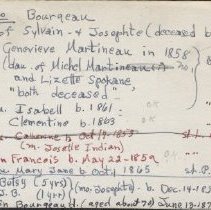 Bourgeau
of Sylvain + Josephte (deceased b
Genevieve Martineau in 1858
(dau. of Michel Martineau(?)
and Lizette Spokane
"both deceased"
u. Isabell b. 1861
Clementine b. 1863
Catherine b. Oct 19, 1855
(m. Josette Indian)
en Francois b. May 22-1859
au Mary Jane b. Oct 4 1865 st. P.
Betsy (5 yrs) (mo: Josephte) b. Dec. 14-18
J.B. (1 yr)
en Bourgeau d. (aged about 70) June 13-187